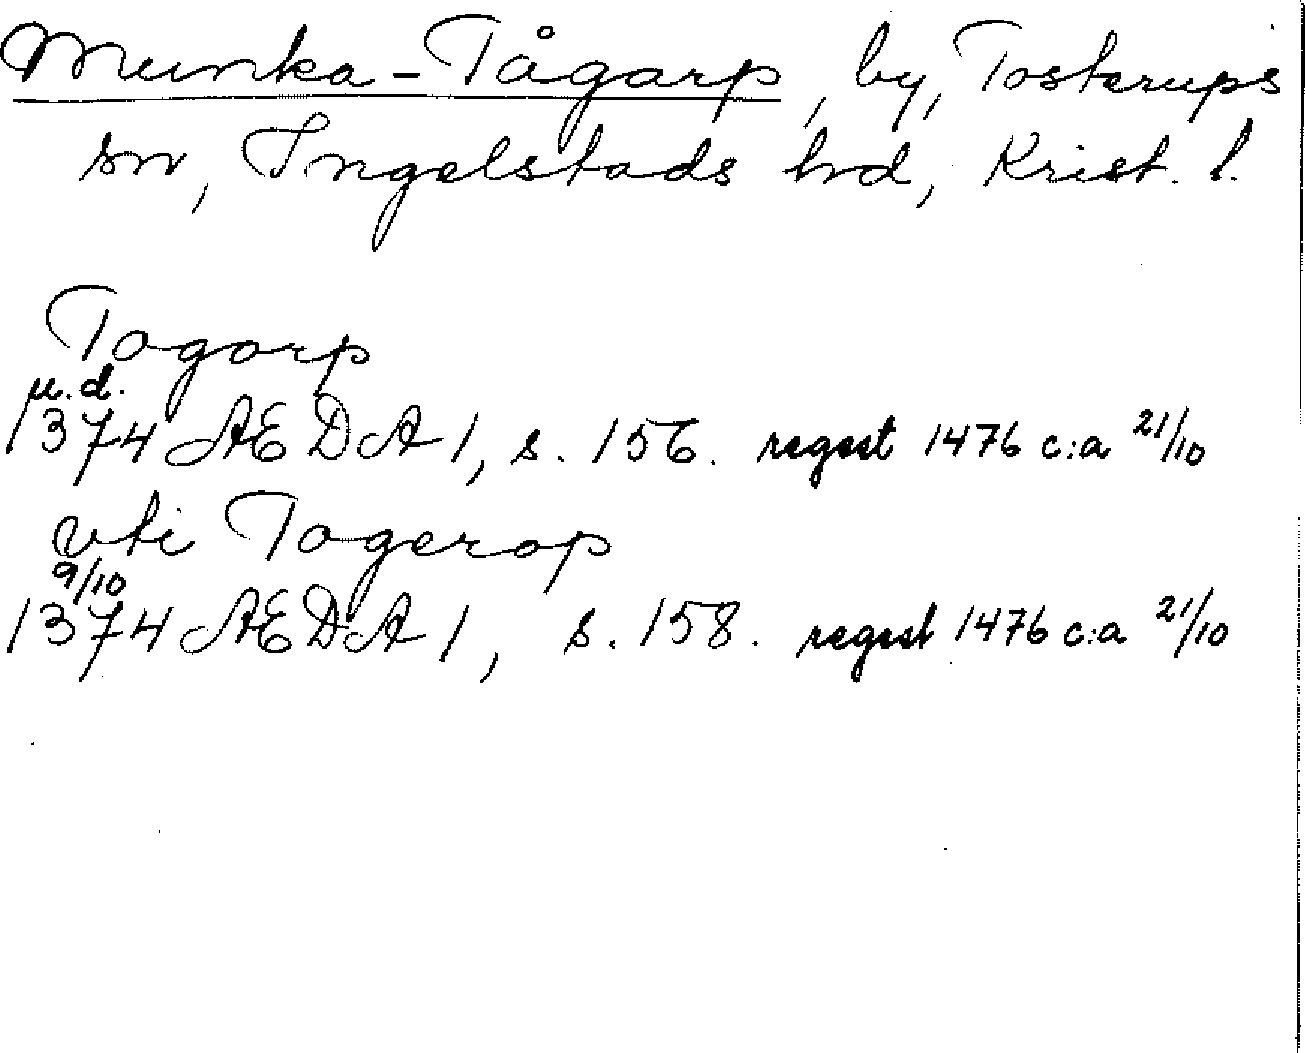 Munka-Tågarp, by, Tosterups
sn, Ingelstads hd, Krist. l.
Togarp
u.d.
1374 AEDA 1, s. 156. regest 1476 c:a 21/10
vti Togerop
9/10
1374 AEDA 1, s. 158. regest 1476 c:a 21/10